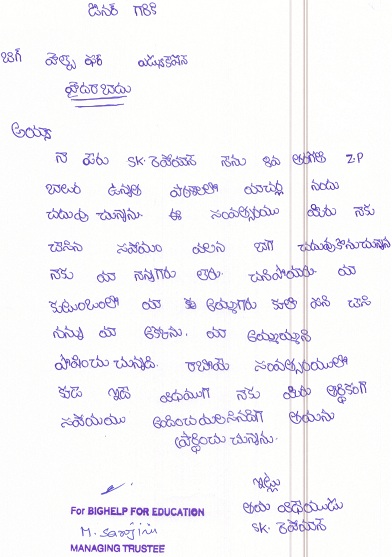 డినర్ గారికి
బిగ్ హెల్ప్ ఫర్ ఎడ్యుకేషన్
హైదరాబాదు
అయ్యా
నా పేరు SK. రిహానా నేను 9వ తరగతి Z.P
బాలుర ఉన్నత పాఠశాలలో నందు
చదువు చున్నాను. ఈ సంవత్సరము మీరు నాకు
చేసిన సహాయం వలన బాగా చదువుకొనుచున్నాను
నాకు మా నాన్నగారు లేరు. చనిపోయారు. మా
కుటుంబంలో మా అమ్మగారు కూలి పని చేసి
నన్ను మా అక్కను. మా అమ్మమ్మని
పోషించు చున్నది. రాబోయే సంవత్సరములో
కూడ ఇదే విధముగా నాకు మీరు ఆర్థికంగా
సహాయము అందించవలసినదిగా మిమ్మను
ప్రార్థించు చున్నాను.
ఇట్లు
తమ విధేయుడు
SK.
For BIGHELP FOR EDUCATION
M. Sarojini
MANAGING TRUSTEE